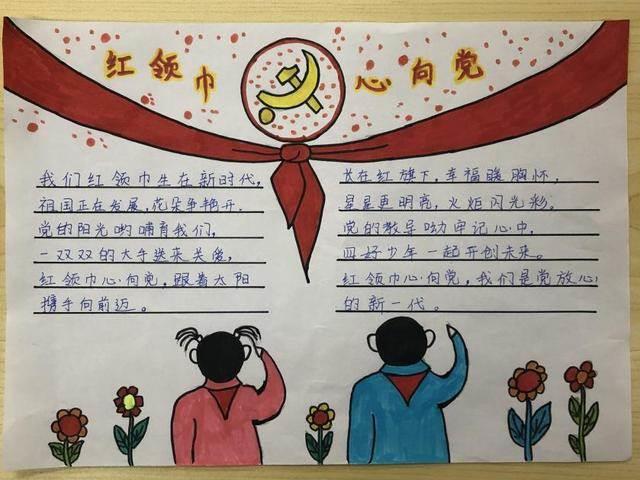 红领巾 心向党
我们红领巾生在新时代，
祖国正在发展，花朵争艳开.
党的阳光哟哺育我们，
一双双的大手送来关爱，
红领巾心向党，跟着太阳
携手向前迈。
长在红旗下，幸福暖胸怀，
星星更明亮，火炬闪光彩。
党的教导呦牢记心中，
四好少年一起开创未来。
红领巾心向党，我们是党放心
的新一代。